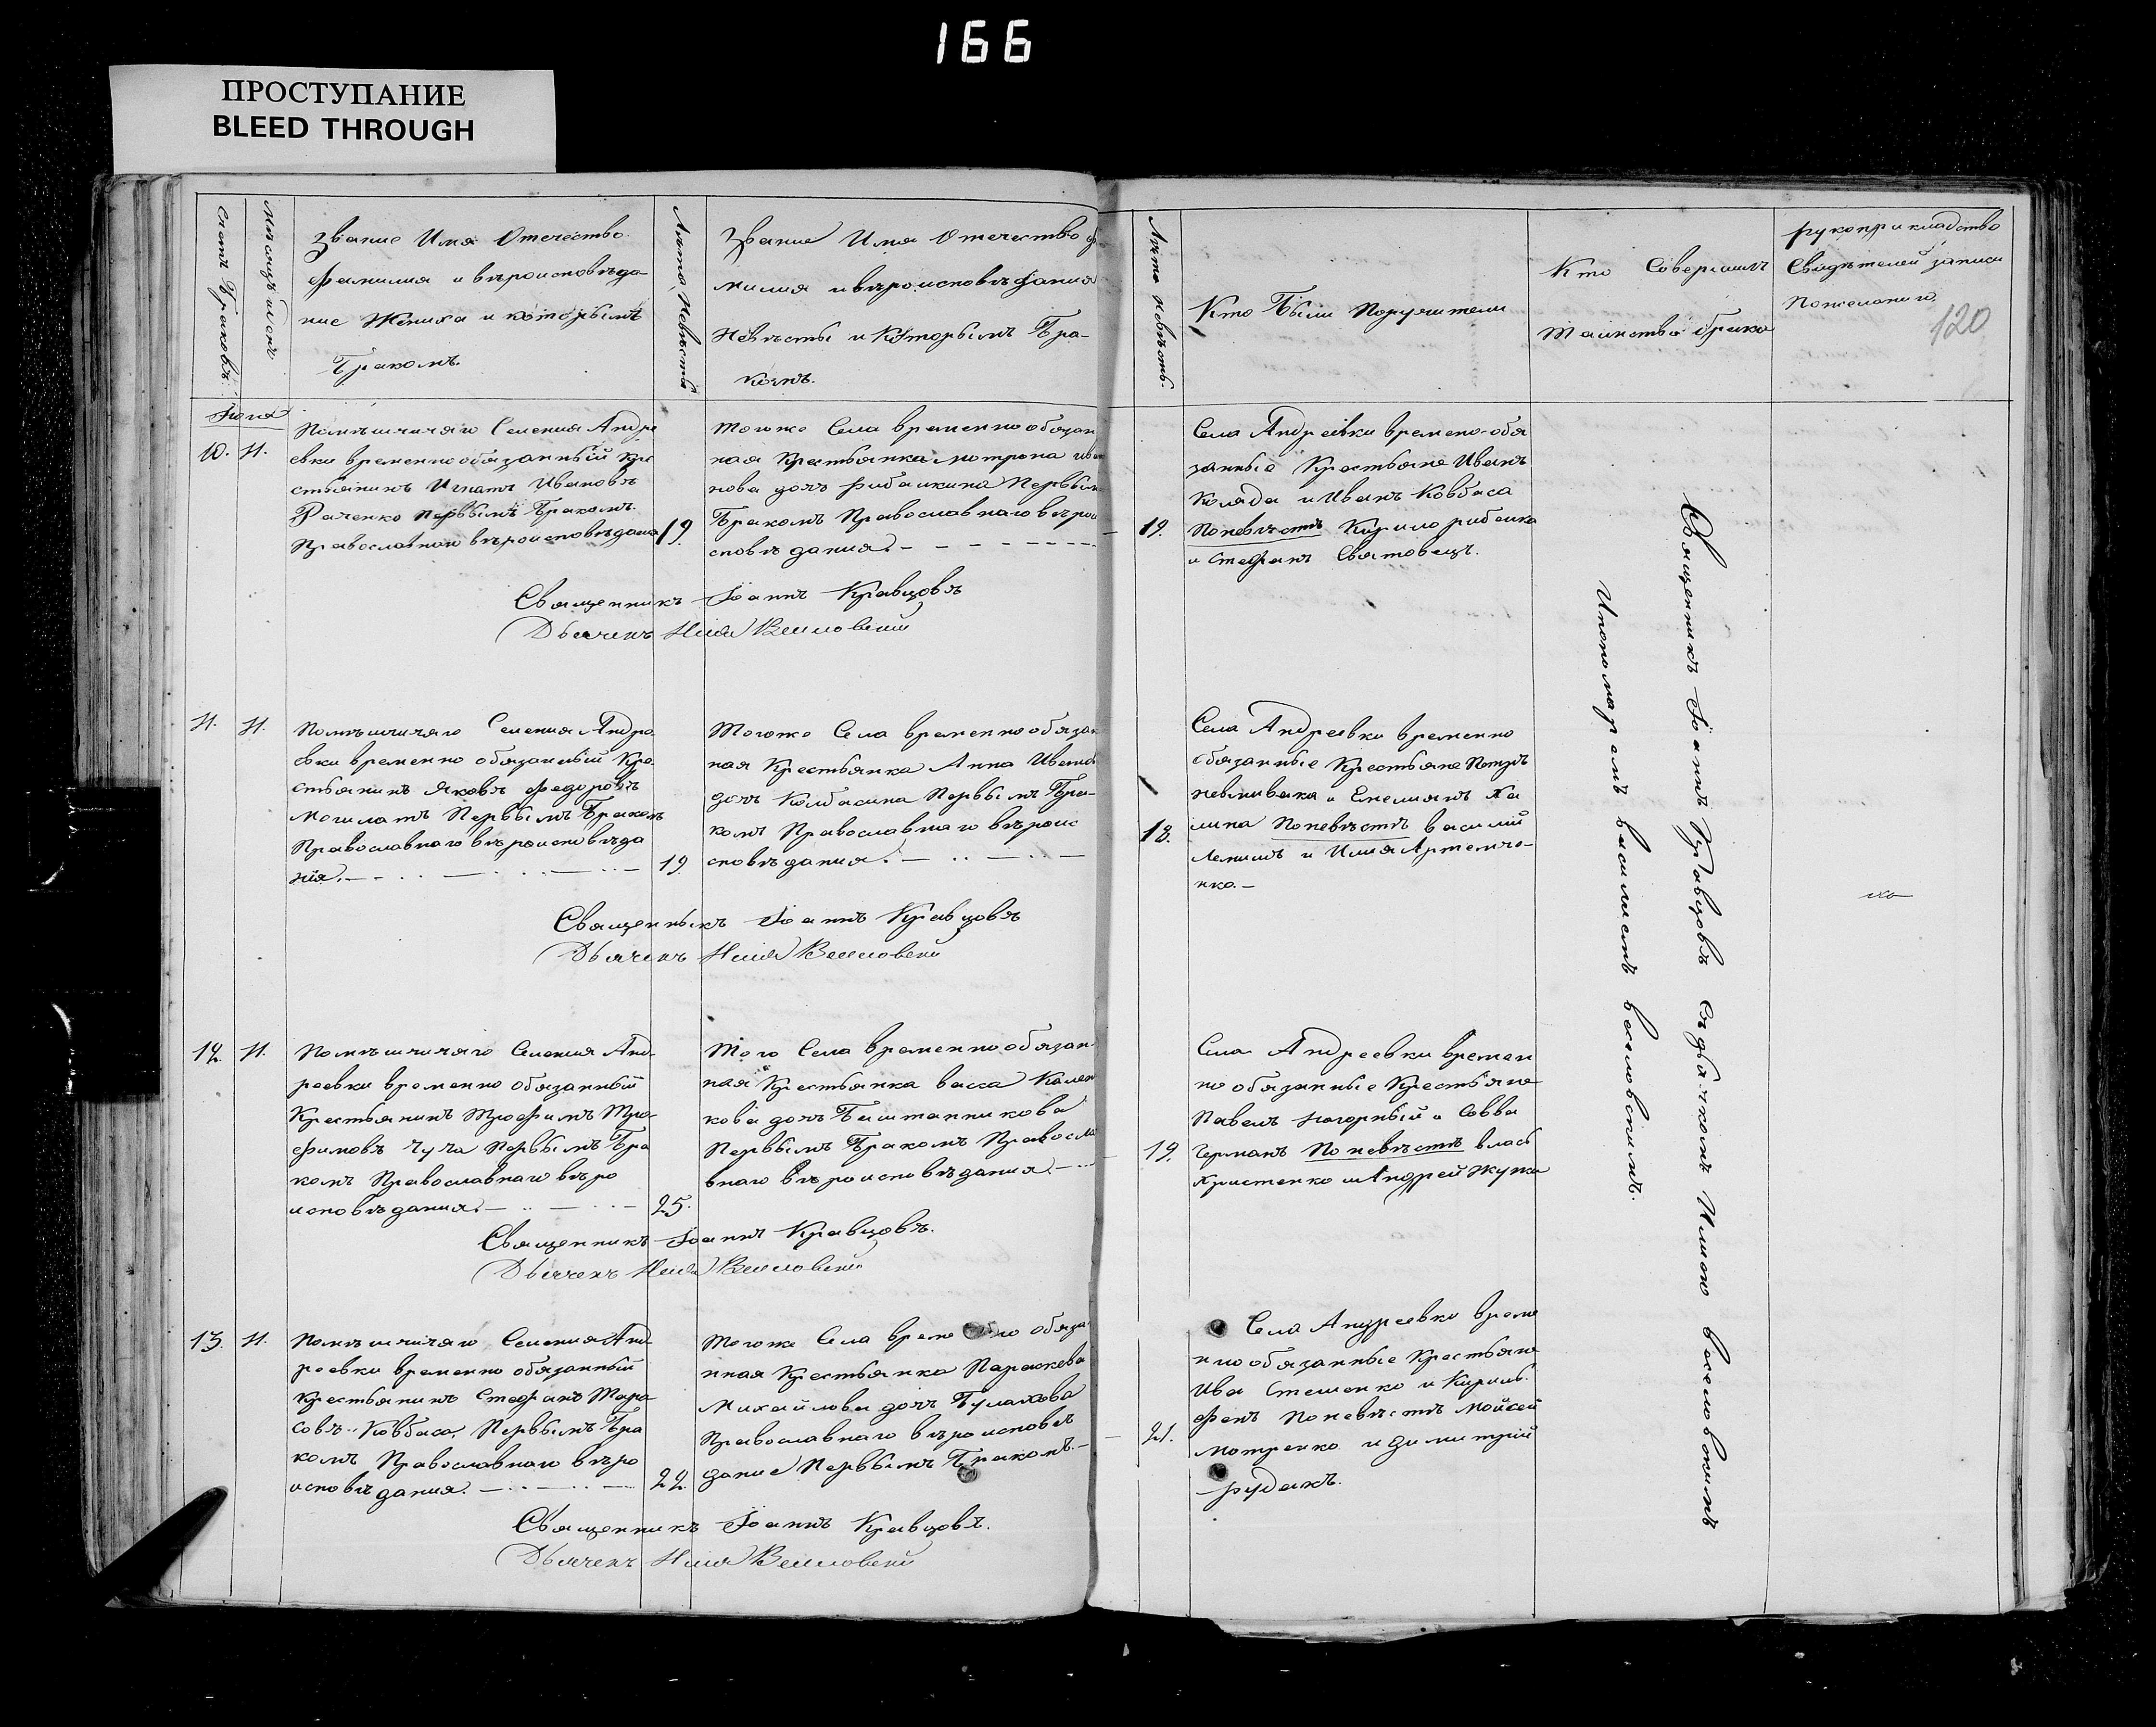 166
ПРОСТУПАНИЕ
BLEED THROUGH
Счетъ Браковъ.
Мѣсяцъ и день
Званіе Имя Отечество
Фамилия и вѣроисповѣда-
ние Жениха и которымъ
Бракомъ.
Лѣта Невѣсты
Званіе Имя Отечество Фа
милия и вѣроисповѣдания
Невѣсты и Которымъ Бра-
комъ.
Лѣта невѣсты.
Кто Были Поручители
Кто Совершилъ
Таинство брака
рукоприкладство
Свидѣтелей записи
Пожеланию.
120
10. 11.
Помѣщичяго Селения Андре
евки временно обязанный Кре
стьянинъ Игнатъ Ивановъ
Первымъ Бракомъ.
Православнаго вѣроисповѣдания
19.
Тогоже Села временно обязан
ная Крестьянка Мотрона Ива
нова дочъ Первымъ
Бракомъ Православнаго вѣрои
сповѣдания.
19.
Села Андреевки времено-обя
занные Крестьяне Иванъ
Коляда и Иванъ Ковбаса
По невѣстѣ Кирило рибалка
и Стефанъ Святовецъ.
Священникъ Іоаннъ Кравцовъ
Дьячекъ Илія Веселовский
11. 11.
Помѣщичяго Селения Андре
евки временно обязанный Кре
стьянинъ Яковъ Федоровъ
Могилатъ Первымъ Бракомъ
Православнаго вѣроисповѣда
нія.
19.
Тогоже Села временно обязан
ная Крестьянка Анна Иванов
дочъ Колбасина Первымъ Бра-
комъ Православнаго вѣроис
сповѣдания.
18.
Села Андреевки временно
обязанные Крестьяне Петръ
и Емелиянъ Ха
лина По невѣстѣ василій
и Илия Артемче-
нко.
Священныкъ Іоаннъ Кравцовъ
Дьячекъ Илія Веселовский
12. 11.
Помѣщичяго Селения Анд-
реевки временно обязанный
Крестьянинъ Трофимъ Тро-
фимовъ Чуча Первымъ Бра
комъ Православнаго вѣро
исповѣдания.
25.
Того Села временно обязан
ная Крестьянка васса Калени
кова дочъ Баштанникова
Первымъ Бракомъ Правосла
внаго вѣроисповѣдания.
19.
Села Андреевки времен
но обязанные Крестьяне
Павелъ нагорный и Савва
Германъ По невѣстѣ власъ
Христенко и Андрей Жупка
Священникъ Іоаннъ Кравцовъ.
Дьячекъ Илія Веселовский
13. 11.
Помѣщичяго Селения Анд-
реевки временно обязанный
Крестьянинъ Стефанъ Тара
совъ Ковбаса, Первымъ Бра
комъ Православнаго вѣро
исповѣдания.
22.
Тогоже Села временно обяза
нная Крестьянка Параскева
Михайлова дочъ Булахова
Православнаго вѣроисповѣ
дание Первымъ Бракомъ.
21.
Села Андреевки време
нно обязанные Крестьяне
Ива Стешенко и Кирилъ
По невѣстѣ Мойсей
мотренко и димитрій
рудакъ.
Священникъ Іоаннъ Кравцовъ.
Дьячекъ Илія Веселовский
Священникъ Іоаннъ Кравцовъ съ дьячкомъ Илиею веселовскимъ
И пономаремъ василиемъ веселовскимъ.